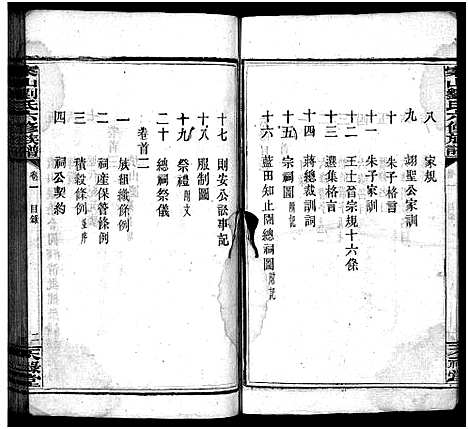 八 家規
九 翊聖公家訓
十 朱子格言
十一 朱子家訓
十二 王士晉宗規十六條
十三 選集格言
十四 蔣總裁訓詞
十五 宗祠圖附記
十六 藍田知止園總祠圖附記
十七 則安公訟事記
十八 服制圖
十九 祭禮附文
二十 總祠祭儀
卷首二
一 族組織條例
二 祠產保管條例
三 積穀條例並序
四 祠公契約
山劉氏六修族譜
卷一
目錄
二
天祿堂